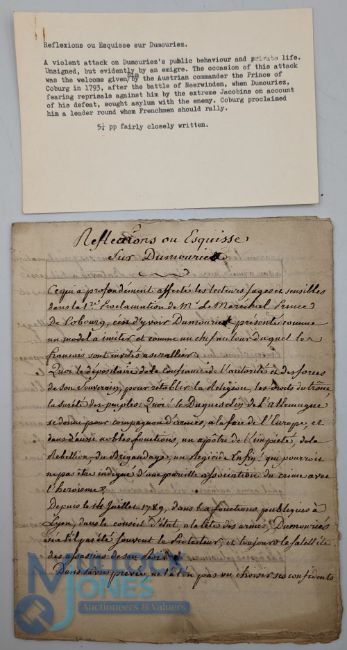 Reflexions ou Esquisse sur Dumouriez.
A violent attack on Dumouriez's public behaviour and private life.
Unsigned, but evidently by an emigre. The occasion of this attack
was the welcome given him by the Austrian commander the Prince of
Coburg in 1793, after the battle of Neerwinden, when Dumouriez,
fearing reprisals against him by the extreme Jacobins on account
of his defeat, sought asylum with the enemy. Coburg proclaimed
him a leader round whom Frenchmen should rally.
5½ pp fairly closely written.
Reflexions ou Esquisse
Sur Dumouriez
Ce qui a profondement affecté les lecteurs sages et sensibles
dans la 1re Proclamation de Mr Le Maréchal Prince
de Cobourg, c'est d'y voir Dumouriez présenté comme
un model a imiter et comme un chef autour duquel les
francais sont invités a se rallier.
Quoi le dépositaire de la confiance de l'autorité et des forces
de son Souverain, pour rétablir la Religion, les droits du trône
la sureté des peuples. Quoi! le Duguesclin de l'allemagne
se donne pour compagnon d'armes, a la face de l'Europe, et
dans d'aussi nobles fonctions, un apôtre de l'impieté, de la
Rebellion, du Brigandage, un Régicide Enfin! qui pourroit
ne pas être indigné d'une pareille association du crime avec
l'heroisme?
Depuis le 14 Juillet 1789, dans les fonctions publiques a
Lyon, dans le conseil d'état, a la tête des armées, Dumouriez
a été souvent le Protecteur, et toujours la satellite
des assassins de son Roi.
Dans la vie privée, ne l'a t'on pas vu choisir ses confidents
MULLOCK
JONES
Auctioneers & Valuers